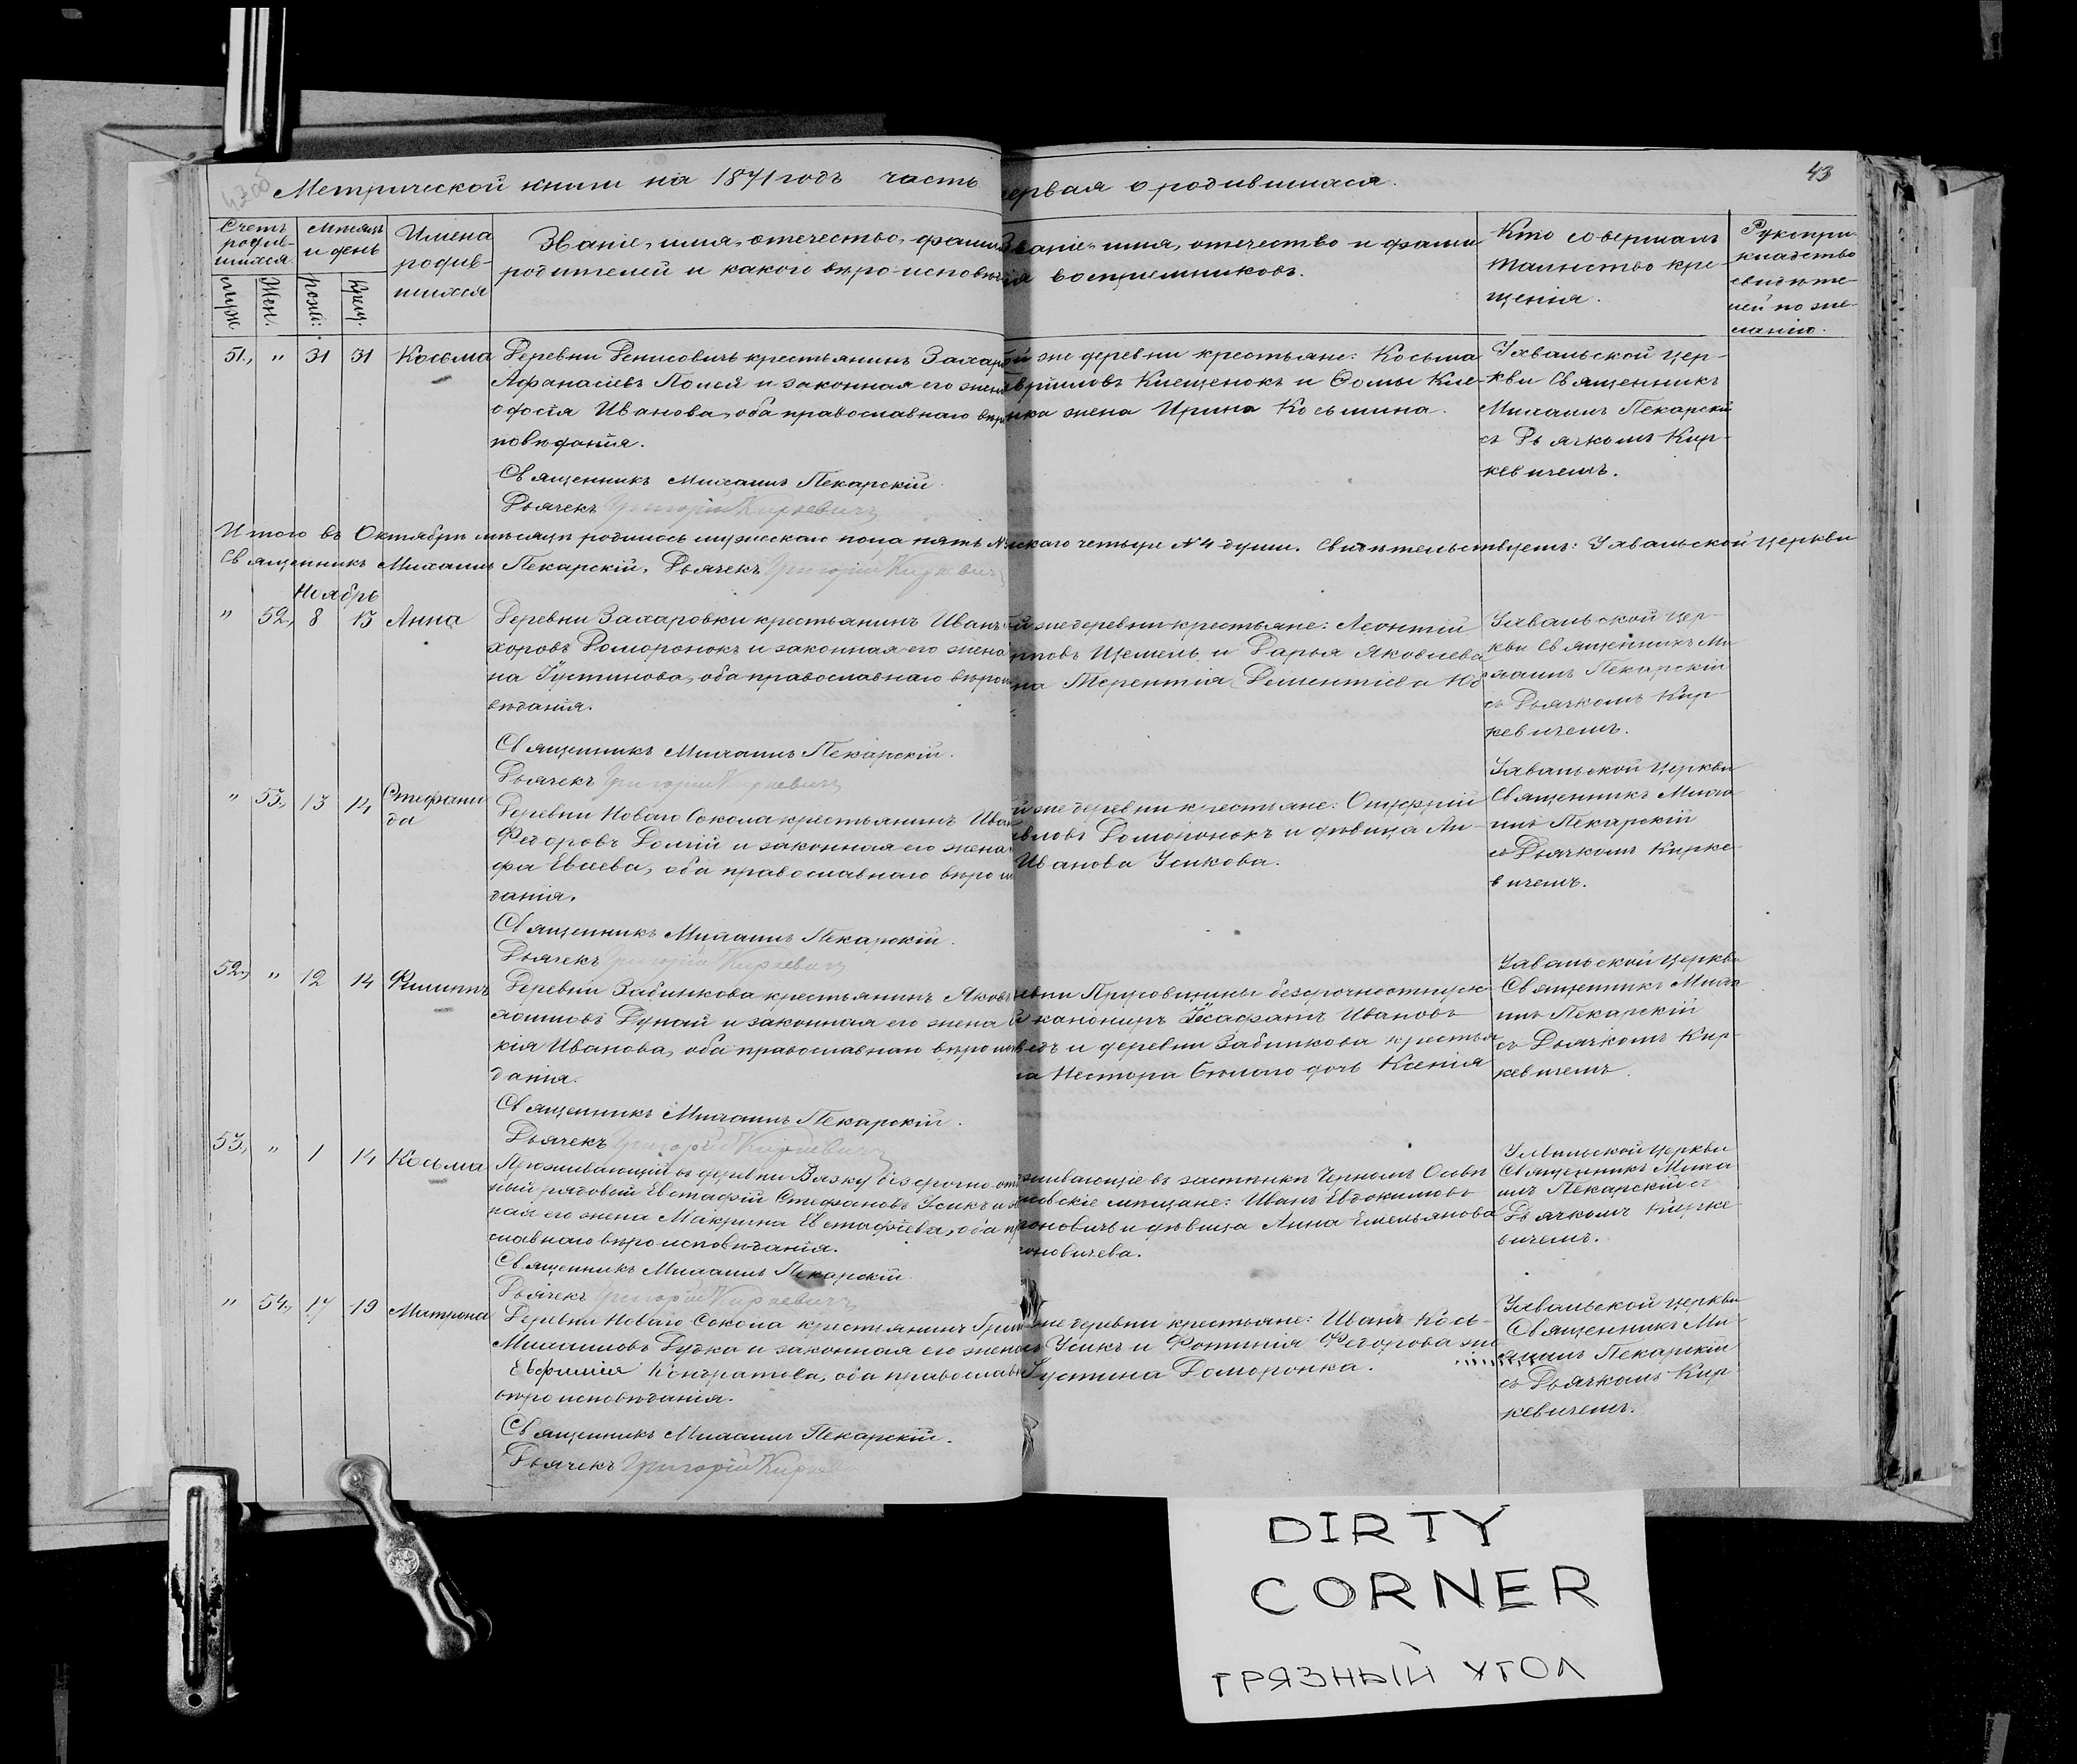 Метрической книги на 1871 годъ часть первая о родившихся.
43
Счетъ родив-шихся
Муж.
Жен.
Мѣсяцъ и день
рожд:
Крещ.
Имена родив-шихся
Званіе, имя, отечество, фамилія
родителей и какого вѣроисповѣд
Званіе, имя, отечество и фами
лія воспріемниковъ.
Кто совершалъ
таинство кре-
щенія.
Рукопри-
кладство
свидѣте-
лей по же-
ланію.
51., " 31 31 Косьма
Деревни Денисовичъ крестьянинъ Захар
Афанасіевъ Полей и законная его жена
Ѳ Иванова, оба православнаго вѣро
повѣданія.
Священникъ Михаилъ Пекарскій.
Дьячекъ Григорій Киркевичъ
ой же деревни крестьяне: Косьма
вриловъ Клещенокъ и Ѳомы Кле-
нка жена Ирина Косьмина.
Ухвальской цер-
кви Священникъ
Михаилъ Пекарскій
съ Дьячкомъ Кир-
кевичемъ.
Итого въ Октябрѣ мѣсяцѣ родилось мужескаго пола пять № нскаго четыре №4 души. Свидѣтельствуетъ: Ухвальской церкви
Священникъ Михаилъ Пекарскій. Дьячекъ Григорій Киркевичъ
Ноябрь
" 52., 8 13 Анна
Деревни Захаровки крестьянинъ Иванъ
хоровъ Доморонокъ и законная его жена
на Густинова, оба православнаго вѣрои
вѣданія.
Священникъ Михаилъ Пекарскій.
Дьячекъ Григорій Киркевичъ
й же деревни крестьяне: Леонтій
повъ Щемель и Дарья Яковлева
на Терентія Дементіева
Ухвальской цер-
кви Священникъ Ми
хаилъ Пекарскій
съ Дьячкомъ Кир-
кевичемъ.
" 53., 13 14 Стефани
да
Деревни Новаго Сокола крестьянинъ Иван
Федоровъ и законная его жена
фа Евсеева, оба православнаго вѣрои
данія.
Священникъ Михаилъ Пекарскій.
Дьячекъ Григорій Киркевичъ
й же деревни крестьяне: Онуфрій
вловъ Доморонокъ и дѣвица Ан-
Иванова Усикова.
Ухвальской Церкви
Священникъ Миха
илъ Пекарскій
съ Дьячкомъ Кирке-
вичемъ.
52., " 12 14 Филиппъ
Деревни Забинкова крестьянинъ Яковъ
Дунай и законная его жена
кія Иванова, оба православнаго вѣроисп
данія.
Священникъ Михаилъ Пекарскій.
Дьячекъ Григорій Киркевичъ
евни Прусовщины безсрочноотпуск-
й канониръ Ивановъ
и деревни Забинкова крестья
на Нестора Бѣлаго дочь Ксенія
Ухвальской Церкви
Священникъ Миха
илъ Пекарскій
съ Дьячкомъ Кир-
кевичемъ.
53., " 1 14 Косьма
Проживающій въ деревни Вязку безсрочно от
ный рядовой Евстафій Стефановъ Усикъ и
ная его жена Макрина Евстафіева, оба п
славнаго вѣроисповѣданія.
Священникъ Михаилъ Пекарскій.
Дьячекъ Григорій Киркевичъ
живающіе въ застѣнкѣ Черномъ Осовѣ
мѣщане: Иванъ Евдокимовъ
роновичъ и дѣвица Анна Емельянова
оновичева.
Ухвальской Церкви
Священникъ Миха
илъ Пекарскій съ
Дьячкомъ Кирке
вичемъ.
" 54., 17 19 Матрона
Деревни Новаго Сокола крестьянинъ Григ
Михаиловъ Дудка и законная его жена
Евфимія Кондратова, оба православн
вѣроисповѣданія.
Священникъ Михаилъ Пекарскій.
Дьячекъ Григорій Кирке
же деревни крестьяне: Иванъ Кось-
Усикъ и Фотинія Федорова же
Густина Доморонка.
Ухвальской церкви
Священникъ Ми-
хаилъ Пекарскій
съ Дьячкомъ Кир-
кевичемъ.
DIRTY
CORNER
ГРЯЗНЫЙ УГОЛ